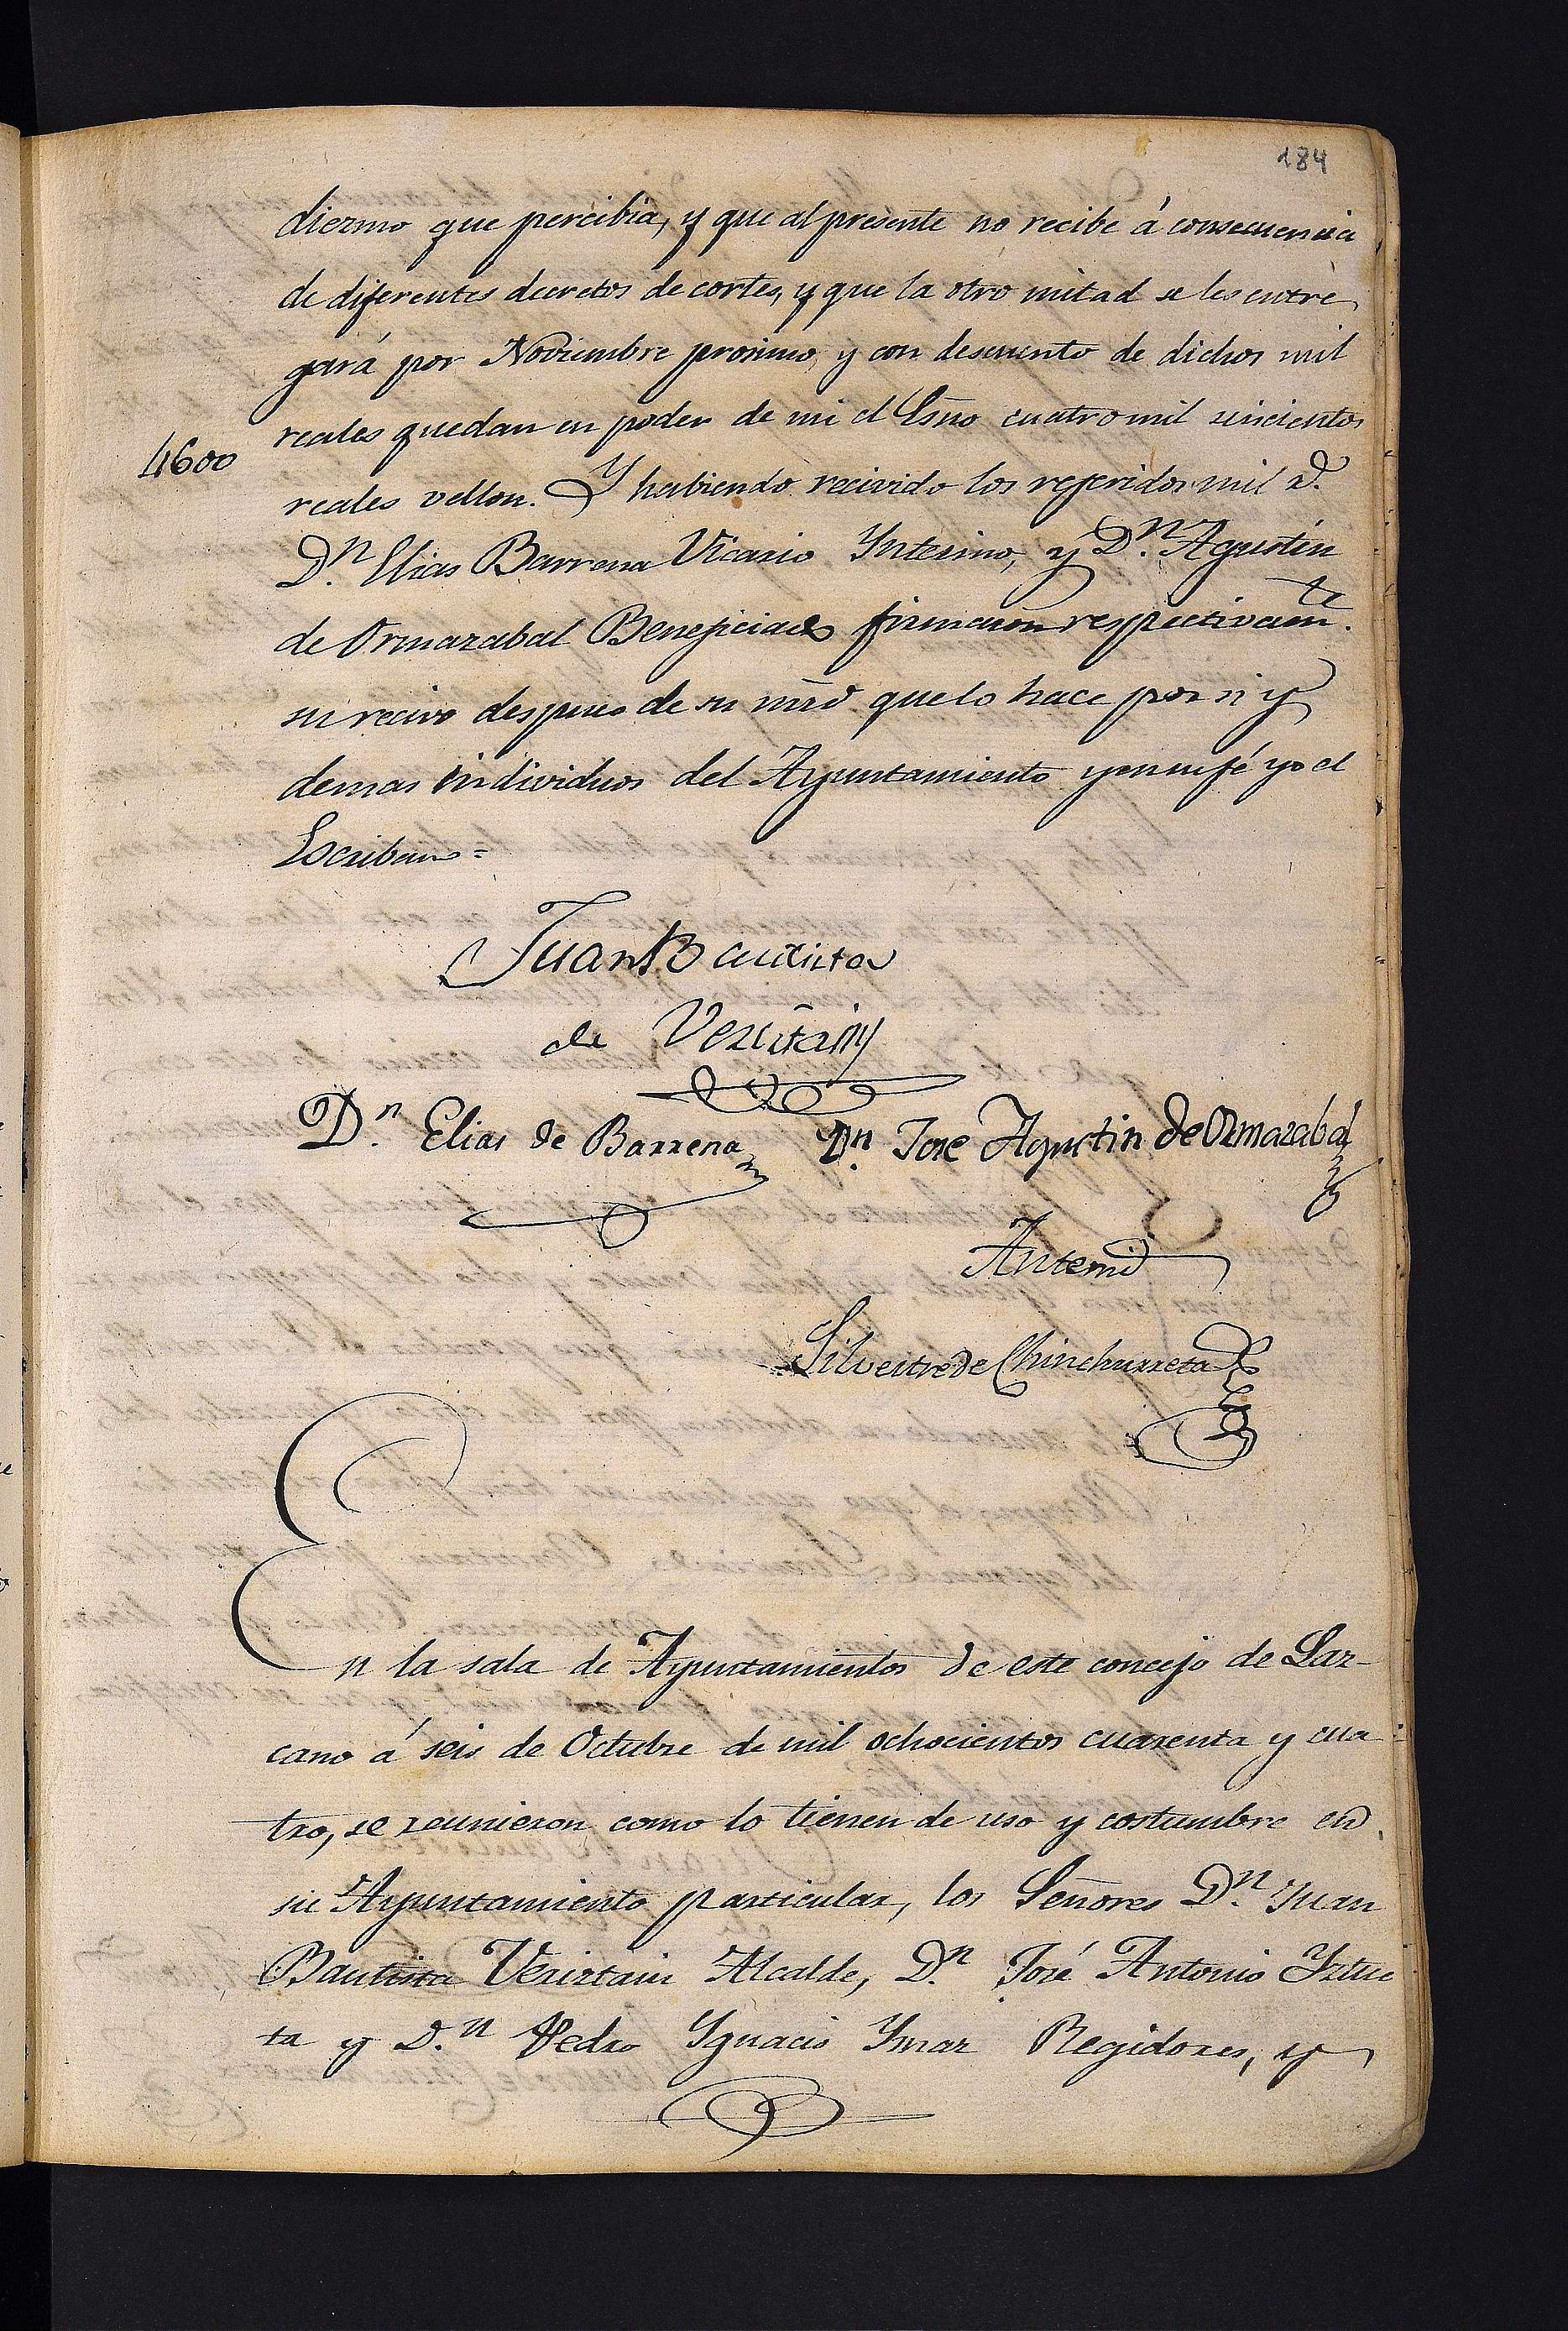 184
diezmo que percibia, y que al presente no recibe á consecuencia
de diferentes decretos de cortes, y que la otro mitad se les entre
gará por Noviembre prosimo, y con descuento de dichos mil
reales quedan en poder de mi el Esno cuatro mil seiscientos
4600
reales vellon. Y habiendo recivido los referidos mil r.
Dn. Elias Barrena Vicario Ynterino, y Dn. Agustin
de Ormazabal Beneficiado firmaron respectivamte.
su recivo despues de su mrd que lo hace por si y
demas individuos del Ayuntamiento y en su fé yo el
Escribano=
Juan Bautista
de Veristain
Dn. Elias de Barrena Dn. Jose Agustin de Ormazabál
Antemi
Silvestre de Chinchurreta
En la sala de Ayuntamientos de este concejo de Laz-
cano á seis de Octubre de mil ochocientos cuarenta y cua
tro, se reunieron como lo tienen de uso y costumbre en
su Ayuntamiento particular, los Señores Dn. Juan
Bautista Veriztain Alcalde, Dn. José Antonio Yztue
ta y D.n Pedro Ygnacio Ymaz Regidores, y